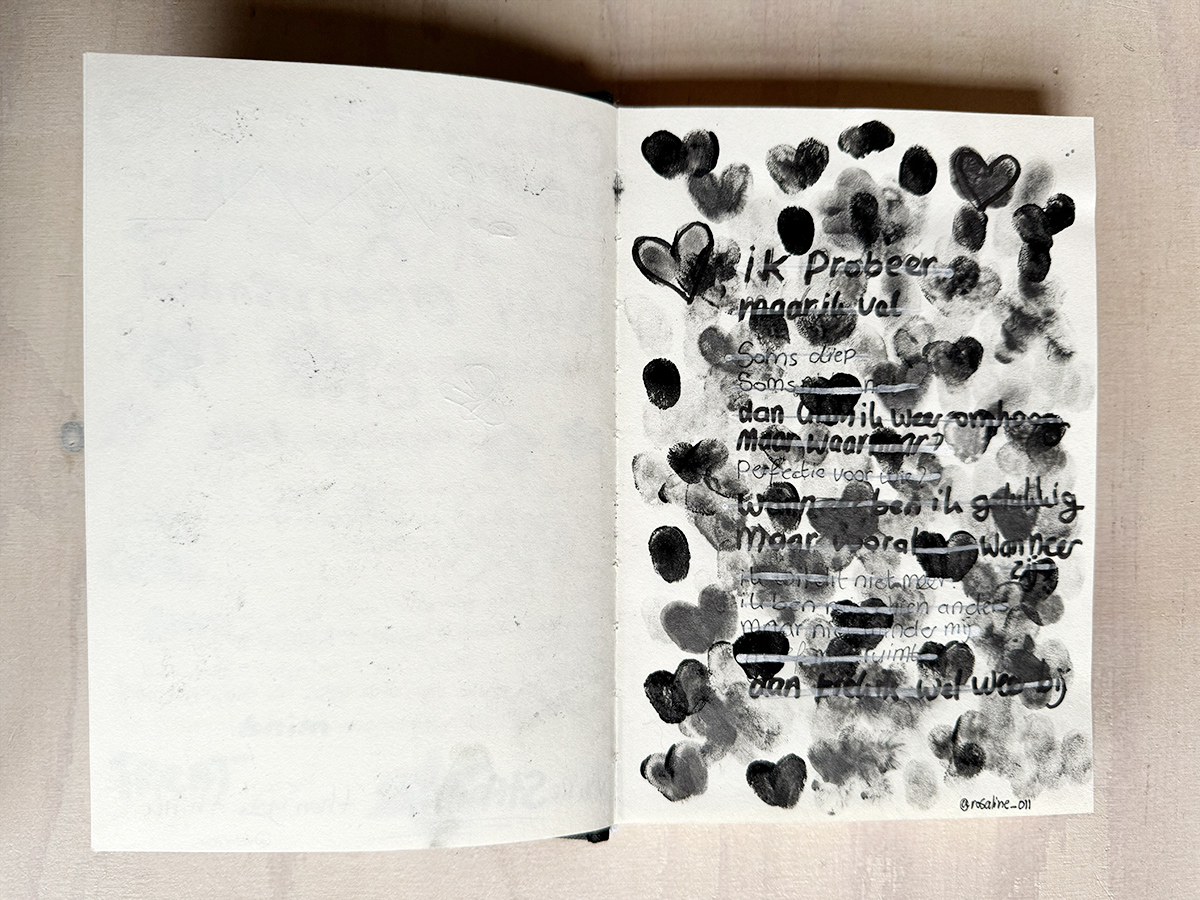 ik probeer
maar ik val
Soms diep
Soms
dan ik weer omhoog
Maar waarnaar?
Perfectie voor wie??
wanneer ben ik gelukkig
Maar vooral wanneer
zij?
ik dit niet meer.
ik ben anders
maar minder mij
ruimte
dan wel weer bij
@rosaline_011